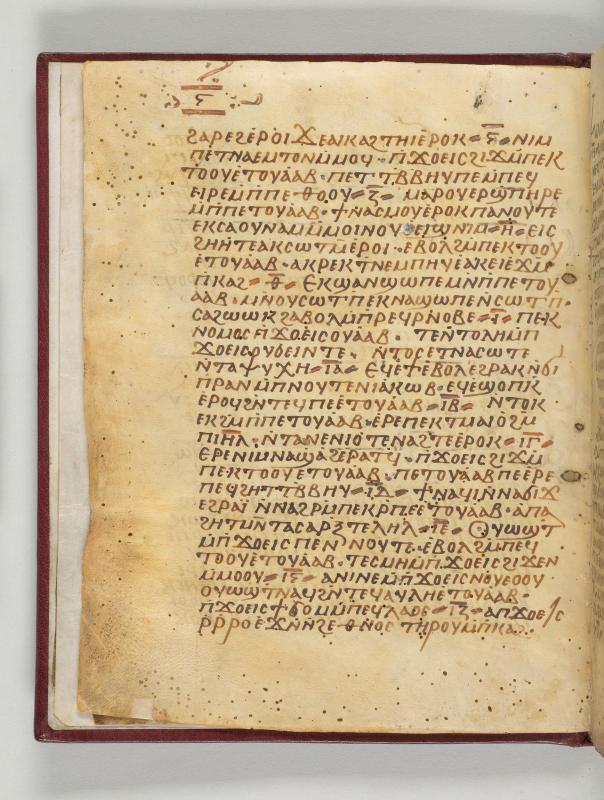 ϛ
ϩⲁⲣⲉϩⲉⲣⲟⲓ ϫⲉⲁⲓⲕⲁϩⲧⲏⲓⲉⲣⲟⲕ ⲋ ⲛⲓⲙ
ⲡⲉⲧⲛⲁⲉⲙⲧⲟⲛⲙⲙⲟϥ · ⲡϫⲟⲉⲓⲥϩⲓϫⲙⲡⲉⲕ
ⲧⲟⲟⲩⲉⲧⲟⲩⲁⲁⲃ · ⲡⲉⲧⲧⲃⲃⲏⲩⲡⲉⲙⲡⲉϥ
ⲉⲓⲣⲉⲙⲡⲡⲉⲑⲟⲟⲩ ⲍ ⲙⲁⲣⲟⲩⲉⲣϣⲡⲏⲣⲉ
ⲙⲡⲡⲉⲧⲟⲩⲁⲁⲃ · ϯⲛⲁⲥⲙⲟⲩⲉⲣⲟⲕⲡⲁⲛⲟⲩⲧⲉ
ⲉⲕⲥⲁⲟⲩⲛⲁⲙⲙⲙⲟⲓⲛⲟⲩⲟⲉⲓϣⲛⲓⲙ ⲏ ⲉⲓⲥ
ϩⲏⲏⲧⲉⲁⲕⲥⲱⲧⲙⲉⲣⲟⲓ · ⲉⲃⲟⲗϩⲙⲡⲉⲕⲧⲟⲟⲩ
ⲉⲧⲟⲩⲁⲁⲃ · ⲁⲕⲣⲉⲕⲧⲛⲉⲙⲡⲏⲩⲉⲁⲕⲉⲓⲉϫⲙ
ⲡⲕⲁϩ ⲑ ⲉⲕϣⲁⲛϣⲱⲡⲉⲙⲛⲡⲡⲉⲧⲟⲩ
ⲁⲁⲃ · ⲙⲛⲟⲩⲥⲱⲧⲡⲉⲕⲛⲁϣⲱⲡⲉⲛⲥⲱⲧⲡ ·
ⲥⲁϩⲱⲱⲕϩⲁⲃⲟⲗⲙⲡⲣⲉϥⲣⲛⲟⲃⲉ ⲓ ⲡⲉⲕ
ⲛⲟⲙⲟⲥⲡϫⲟⲉⲓⲥⲟⲩⲁⲁⲃ · ⲧⲉⲛⲧⲟⲗⲏⲙⲡ
ϫⲟⲉⲓⲥⲟⲩⲟⲉⲓⲛⲧⲉ · ⲛⲧⲟⲥⲉⲧⲛⲁⲥⲱⲧⲉ
ⲛⲧⲁⲯⲩⲭⲏ ⲓⲁ ⲉϥⲉϯⲉⲃⲟⲗⲉϩⲣⲁⲕⲛϭⲓ
ⲡⲣⲁⲛⲙⲡⲛⲟⲩⲧⲉⲛⲓⲁⲕⲱⲃ · ⲉϥⲉϣⲟⲡⲕ
ⲉⲣⲟϥϩⲛⲧⲉϥⲡⲉⲉⲧⲟⲩⲁⲁⲃ ⲓⲃ ⲛⲧⲟⲕ
ⲉⲕϩⲙⲡⲡⲉⲧⲟⲩⲁⲁⲃ · ⲉⲣⲉⲡⲉⲕⲧⲙⲁⲓⲟϩⲙ
ⲡⲓⲏⲗ · ⲛⲧⲁⲛⲉⲛⲓⲟⲧⲉⲛⲁϩⲧⲉⲉⲣⲟⲕ ⲓⲅ
ⲉⲣⲉⲛⲓⲙⲛⲁϣⲁϩⲉⲣⲁⲧϥ · ⲡϫⲟⲉⲓⲥϩⲓϫⲙ
ⲡⲉⲕⲧⲟⲟⲩⲉⲧⲟⲩⲁⲁⲃ · ⲡⲉⲧⲟⲩⲁⲁⲃⲡⲉⲉⲣⲉ
ⲡⲉϥϩⲏⲧⲧⲃⲃⲏⲩ ⲓⲇ ϯⲛⲁϥⲓⲛⲛⲁϭⲓϫ
ⲉϩⲣⲁⲓ ⲛⲛⲁϩⲣⲙⲡⲉⲕⲣⲡⲉⲉⲧⲟⲩⲁⲁⲃ · ⲁⲡⲁ
ϩⲏⲧⲙⲛⲧⲁⲥⲁⲣⲝⲧⲉⲗⲏⲗ ⲓⲉ ⲟⲩⲱϣⲧ
ⲙⲡϫⲟⲉⲓⲥⲡⲉⲛⲛⲟⲩⲧⲉ · ⲉⲃⲟⲗϩⲙⲡⲉϥ
ⲧⲟⲟⲩⲉⲧⲟⲩⲁⲁⲃ · ⲧⲉⲥⲙⲏⲙⲡϫⲟⲉⲓⲥϩⲓϫⲉⲛ
ⲙⲙⲟⲟⲩ ⲓⲋ ⲁⲛⲓⲛⲉⲙⲡϫⲟⲉⲓⲥⲛⲟⲩⲉⲟⲟⲩ
ⲟⲩⲱϣⲧⲛⲁϥϩⲛⲧⲉϥⲁⲩⲗⲏⲉⲧⲟⲩⲁⲁⲃ ·
ⲡϫⲟⲉⲓⲥϯϭⲟⲙⲙⲡⲉϥⲗⲁⲟⲥ ⲓⲍ ⲁⲡϫⲟⲉⲓⲥ
ⲣⲣⲣⲟⲉϫⲛⲛϩⲉⲑⲛⲟⲥ ⲧⲏⲣⲟⲩⲙⲡⲕⲁϩ